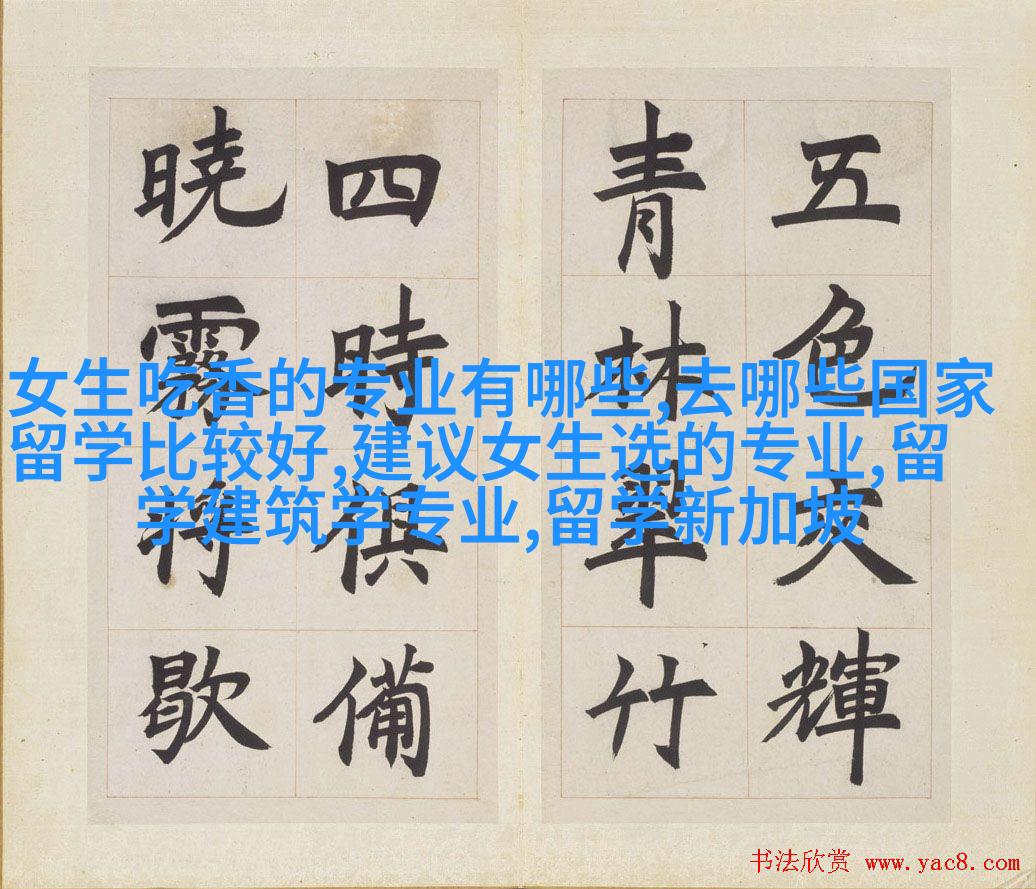 五色交輝
青林翠竹
四時俱備
曉霧將歇
女生吃香的专业有哪些,去哪些国家
留学比较好,建议女生选的专业,留
学建筑学专业,留学新加坡
书法欣赏 www.yac8.com